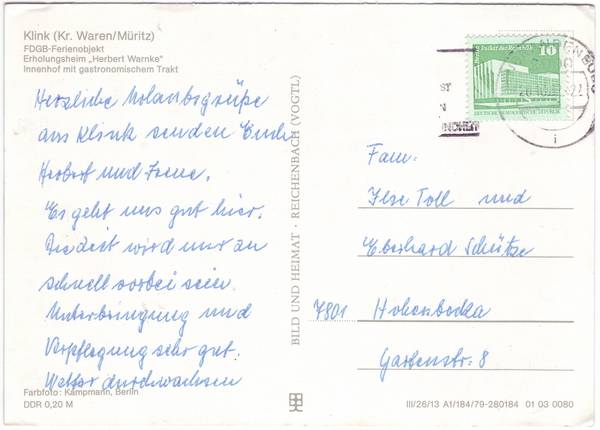 Klink (Kr. Waren/Müritz)
FDGB-Ferienobjekt
Erholungsheim „Herbert Warnke“
Innenhof mit gastronomischem Trakt
Herzliche Urlaubsgrüße
aus Klink senden Euch
Herbert und Irene.
Es geht uns gut hier.
Die Zeit wird nur zu
schnell vorbei sein.
Unterbringung und
Verpflegung sehr gut.
Wetter durchwachsen
Farbfoto: Kampmann, Berlin
DDR 0,20 M
BILD UND HEIMAT · REICHENBACH (VOGTL)
Berlin, Palast der Republik
10
DEUTSCHE DEMOKRATISCHE REPUBLIK
Fam.
Ilse Toll und
Eberhard Schütze
7801 Hohenbocka
Gartenstr. 8
III/26/13 A1/184/79-280184 01 03 0080